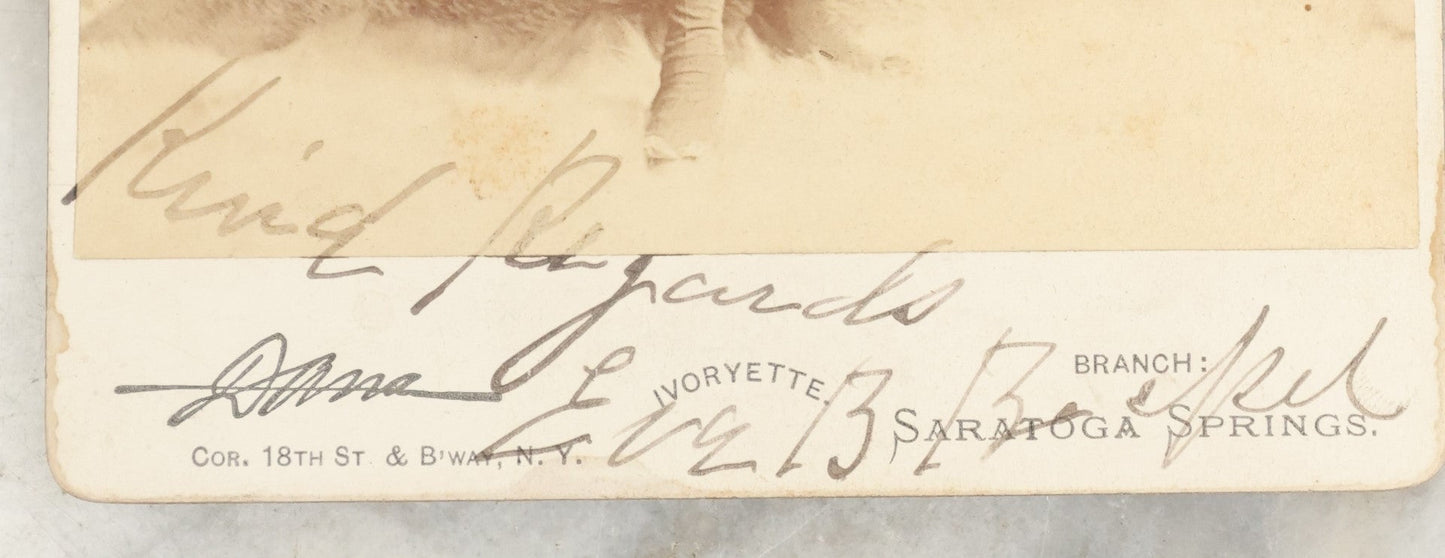 Kind Regards
Dana
IVORYETTE.
BRANCH:
Eva B. B
SARATOGA SPRINGS.
COR. 18TH ST & B'WAY, N. Y.